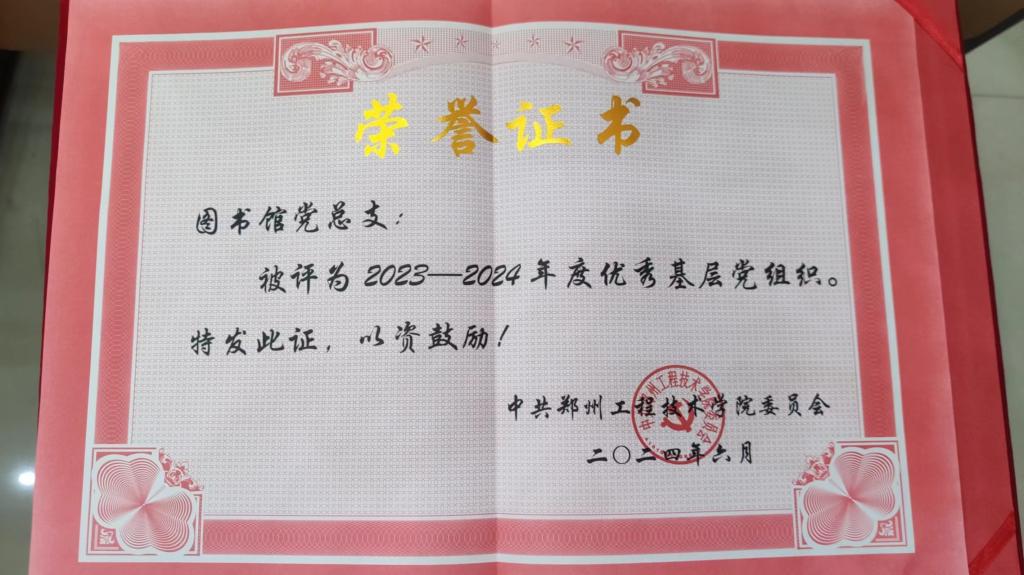 荣誉证书
图书馆党总支：
被评为2023—2024年度优秀基层党组织。
特发此证，以资鼓励！
中共郑州工程技术学院委员会
二〇二四年六月
中共郑州工程技术学院委员会